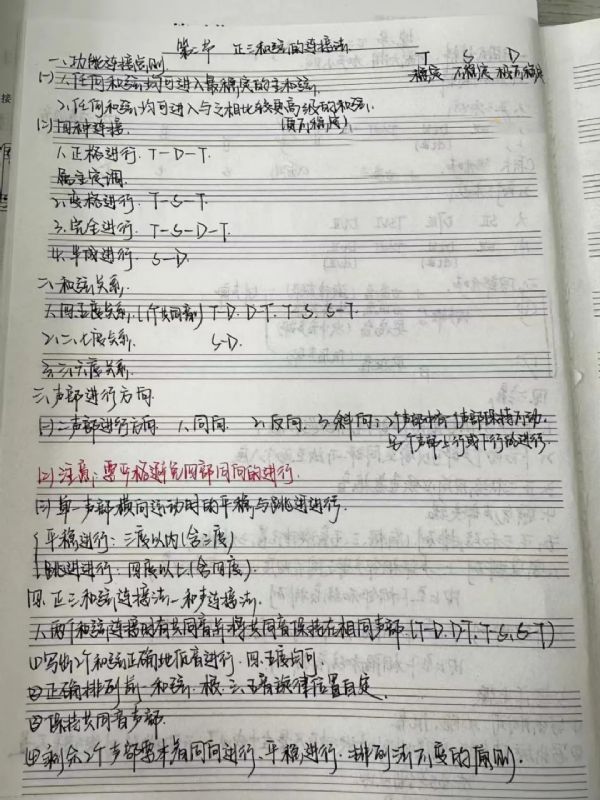 第二节 正三和弦的连接法
一、功能连接原则 T S D
稳定 不稳定 极不稳定
(一) 1、任何和弦均可进入最稳定的主和弦.
2、任何和弦均可进入与之相比较更高级的和弦.
(更不稳定)
(二) 四种连接.
1、正格进行. T-D-T.
属主定调.
2、变格进行. T-S-T.
3、完全进行. T-S-D-T.
4、半成进行 S-D.
二、和弦关系.
1、四五度关系. (1个共同音) T-D. D-T. T-S. S-T.
2、二、七度关系. S-D.
3、三六度关系.
三、声部进行方向.
(一) 二声部进行方向 1、同向 2、反向 3、斜向: 2个声部中有1个声部保持不动.
另1个声部上行或下行的进行.
(二) 注意: 要严格避免四部同向的进行.
(三) 单一声部横向运动时的平稳与跳进进行.
平稳进行: 三度以内(含三度)
跳进进行: 四度以上(含四度).
四、正三和弦连接法—和声连接法.
1、两个和弦连接时有共同音并将共同音保持在相同声部. (T-D. D-T. T-S. S-T)
(1) 写好2个和弦正确地低音进行. 四. 五度均可.
(2) 正确排列前一和弦. 根. 三. 五音旋律位置自定.
(3) 保持共同音声部.
(4) 剩余2个声部要本着同向进行. 平稳进行. 排列法不变的原则.